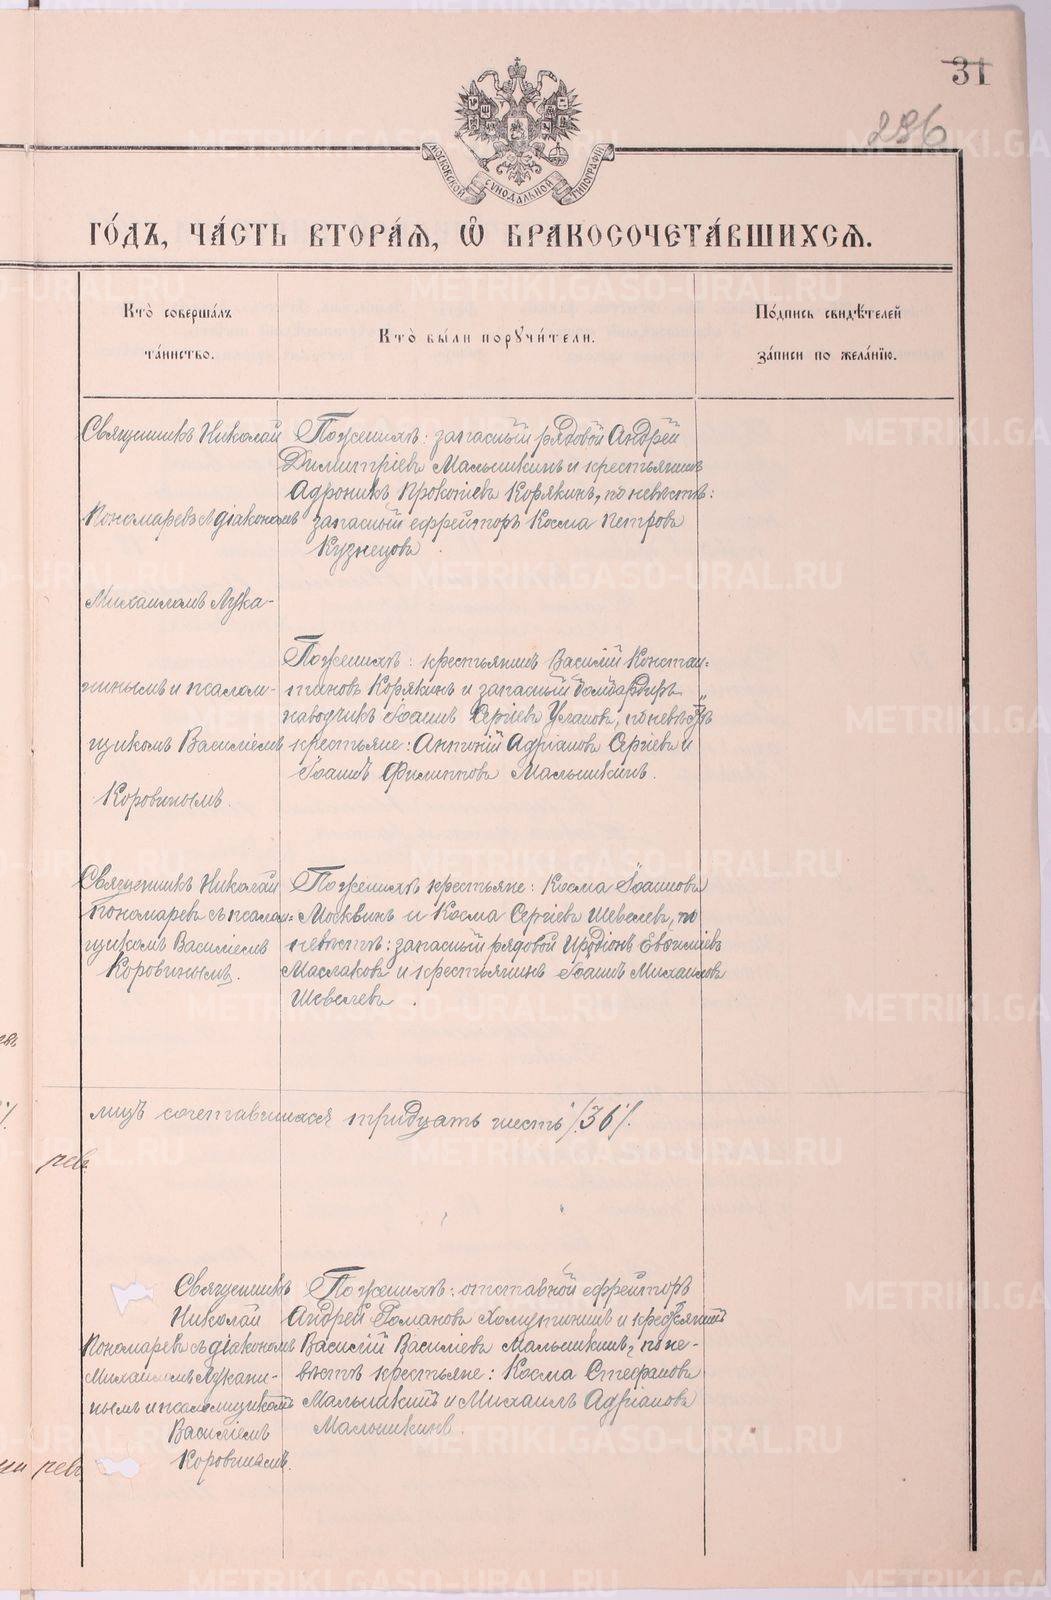 31
286
МОСКОВСКОЙ СУНОДАЛЬНОЙ ТИПОГРАФІИ
ГО́ДЪ, ЧА́СТЬ ВТОРА́Я, Ѽ БРАКОСОЧЕТА́ВШИХСЯ.
Кто̀ соверша́лъ
та́инство.
Кто̀ бы́ли поручи́тели.
По́дпись свидѣ́телей
за́писи по жела́нїю.
Священникъ Николай
Пономаревъ съ діакономъ
Михаиломъ Лука-
нинымъ и псалом-
щикомъ Василіемъ
Коровинымъ.
По женихѣ: запасный рядовой Андрей
Димитріевъ Малышкинъ и крестьянинъ
Адроникъ Прокопіевъ Корякинъ, по невѣстѣ:
запасный ефрейторъ Косма Петровъ
Кузнецовъ.
По женихѣ: крестьянинъ Василій Констан=
тиновъ Корякинъ и запасный бомбардиръ
наводчикъ Іоаннъ Сергіевъ Углановъ, по невѣстѣ
крестьяне: Антоній Адріановъ Сергіевъ и
Іоаннъ Филипповъ Малышкинъ.
Священникъ Николай
Пономаревъ съ псалом=
щикомъ Василіемъ
Коровинымъ.
По женихѣ крестьяне: Косма Іоанновъ
Москвинъ и Косма Сергіевъ Шевелевъ, по
невѣстѣ: запасный рядовой Иродіонъ Евѳиміевъ
Маслаковъ и крестьянинъ Іоаннъ Михаиловъ
Шевелевъ.
лицъ сочетавшихся тридцать шесть /36/.
Священникъ
Николай
Пономаревъ съ діакономъ
Михаиломъ Лукани-
нымъ и псаломщикомъ
Василіемъ
Коровинымъ.
По женихѣ: отставной ефрейторъ
Андрей Романовъ Хомутининъ и крестьянинъ
Василій Василіевъ Малышкинъ, по не-
вѣстѣ крестьяне: Косма Стефановъ
Малышкинъ и Михаилъ Адріановъ
Малышкинъ.
METRIKI.GASO-URAL.RU